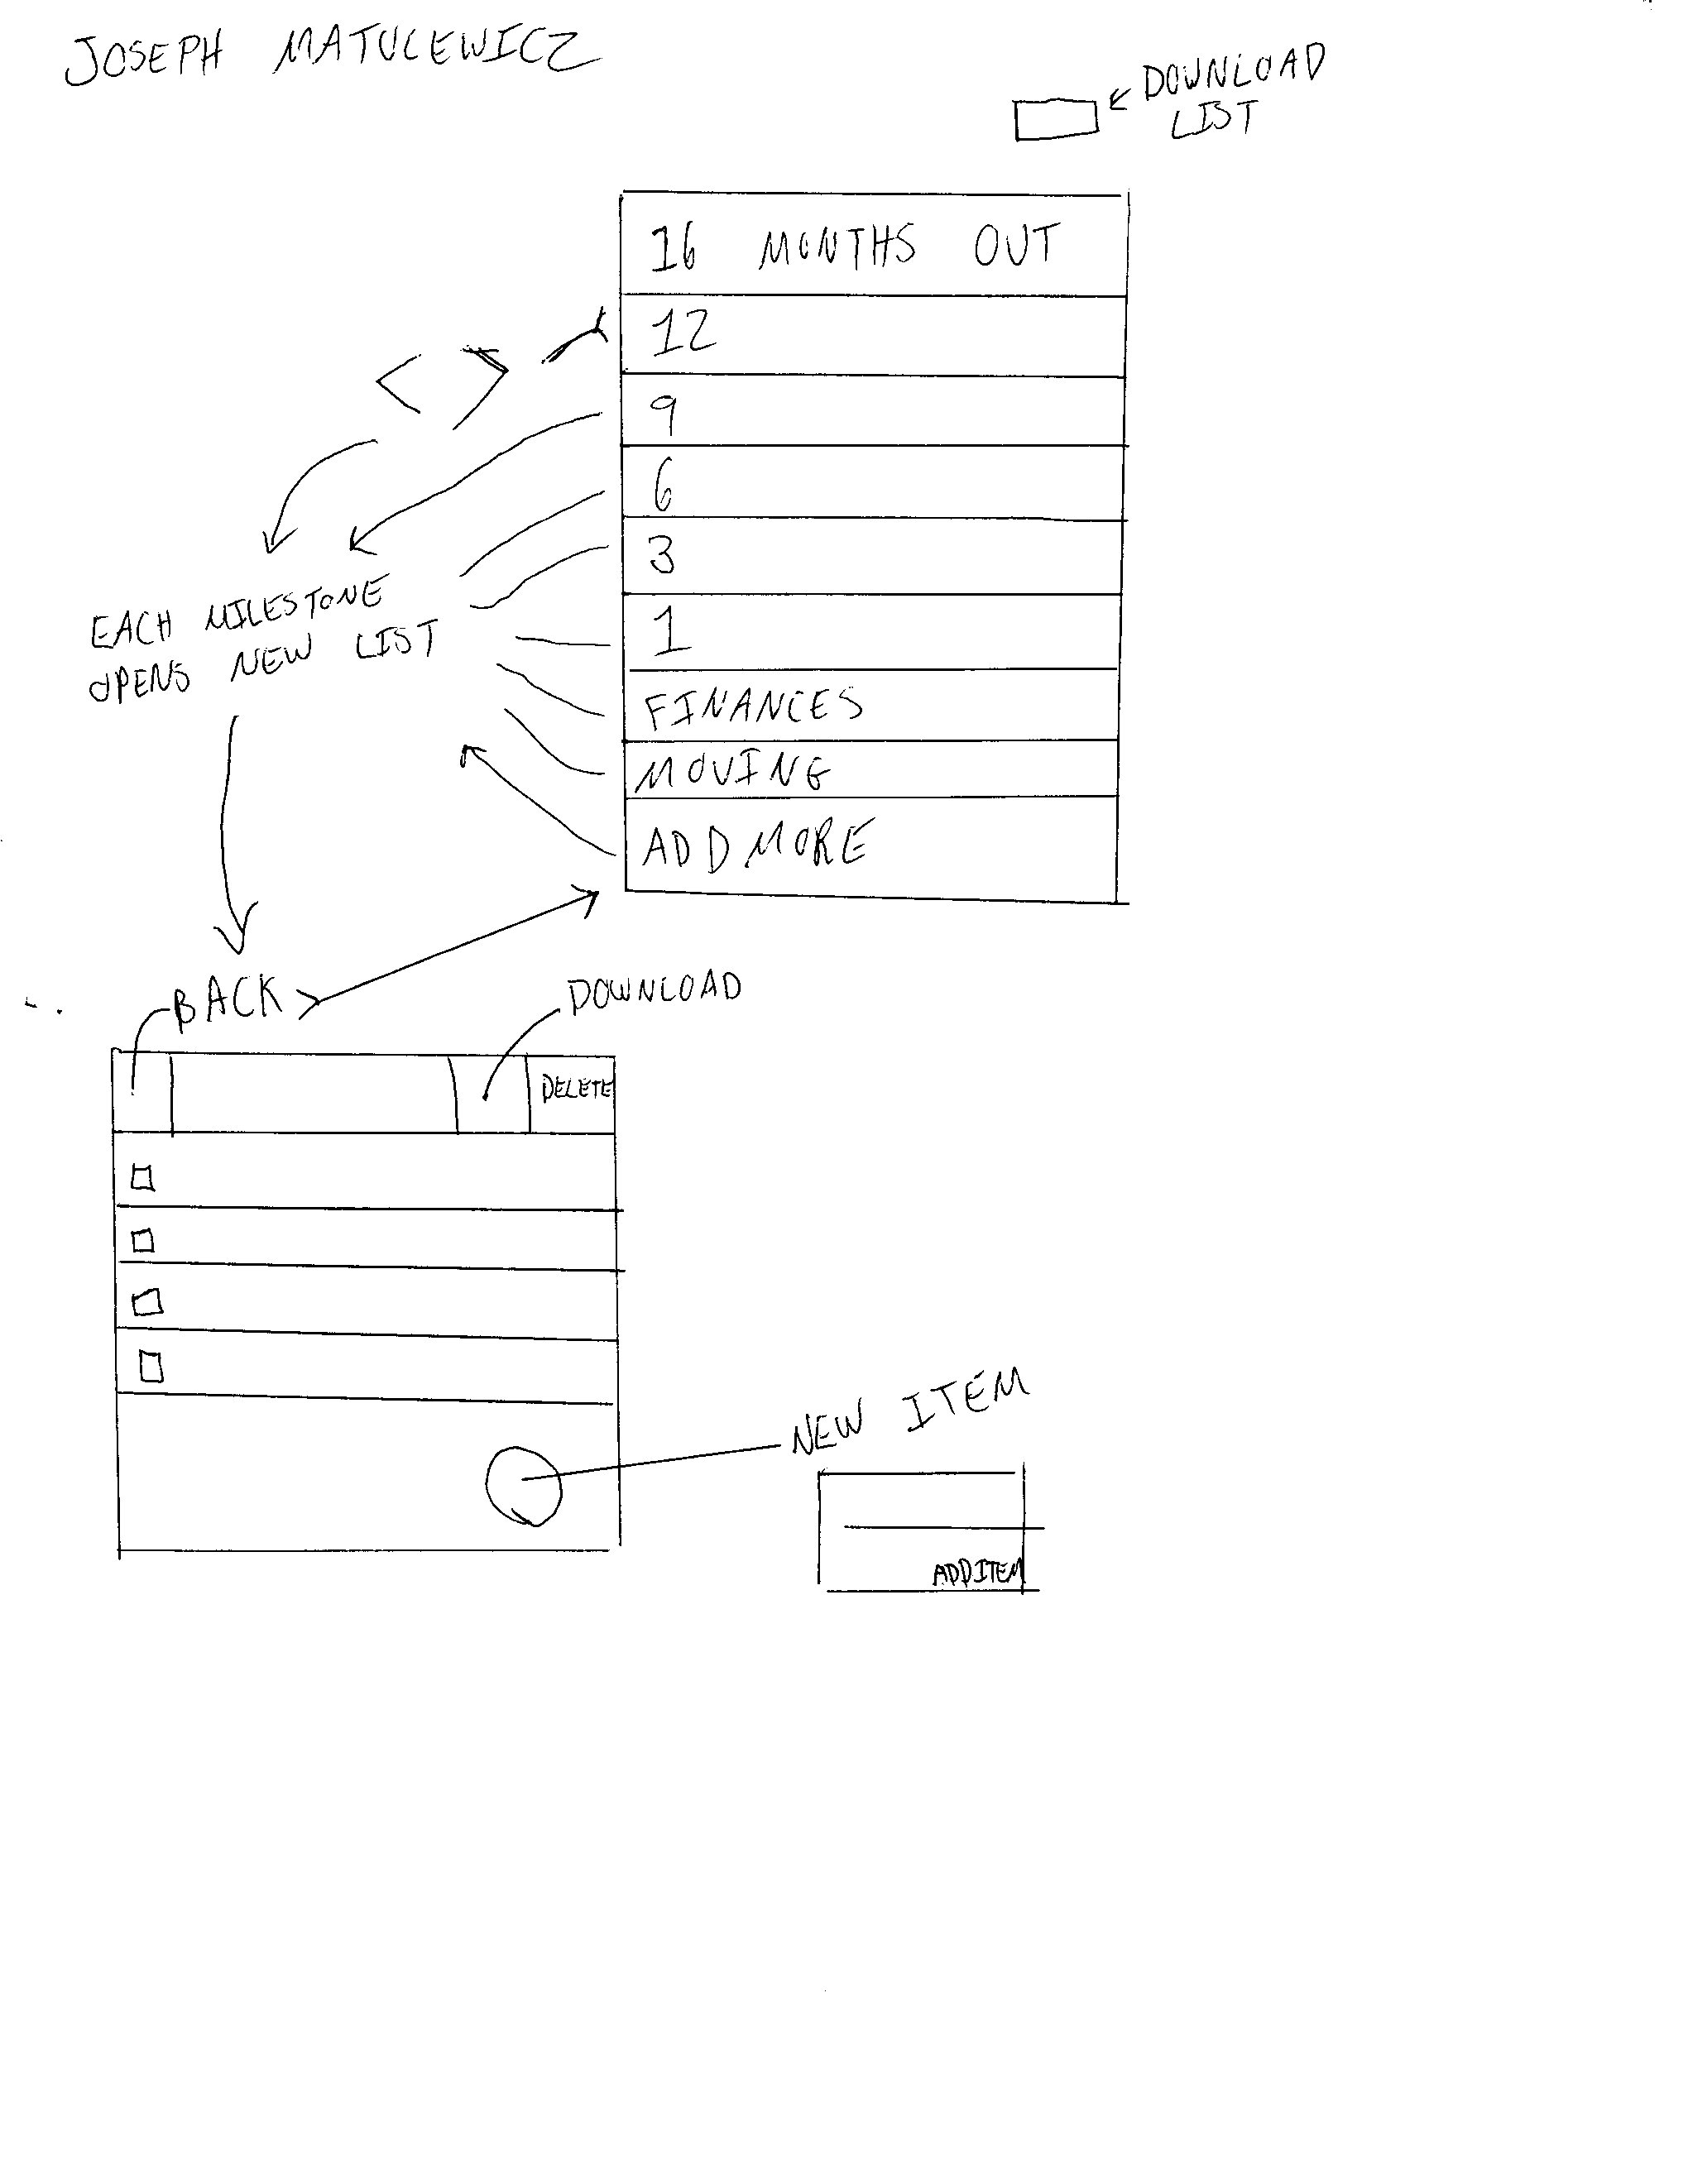 JOSEPH MATULEWICZ
DOWNLOAD
LIST
16 MONTHS OUT
12
9
6
3
1
FINANCES
MOVING
ADD MORE
EACH MILESTONE
OPENS NEW LIST
BACK
DOWNLOAD
DELETE
NEW ITEM
ADD ITEM